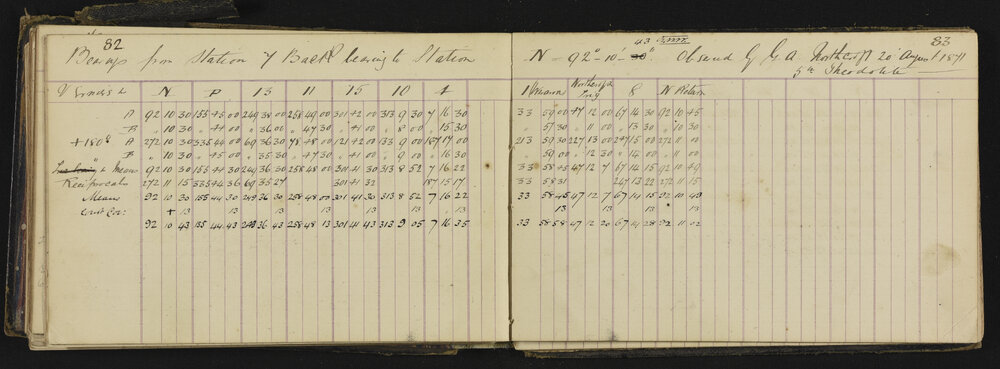 82
Bearings from Station 7 Back bearing to Station
N P 13 11 15 10 4
A 92 10 30 155 45 00 249 38 00 258 49 00 301 42 00 313 9 30 7 16 30
B " 10 30 " 44 00 " 36 00 " 47 30 " 41 00 " 8 00 " 15 30
+180° A 272 10 30 335 44 00 69 36 30 78 48 00 121 42 00 133 9 00 187 17 00
B " 10 30 " 45 00 " 35 30 " 47 30 " 41 00 " 9 00 " 16 30
Means 92 10 30 155 44 30 249 36 30 258 48 00 301 41 30 313 8 52 7 16 22
Reciprocals 272 11 15 335 44 36 69 35 27 301 41 32 187 15 17
Mean 92 10 30 155 44 30 249 36 30 258 48 00 301 41 30 313 8 52 7 16 22
Cor: + 13 13 13 13 13 13 13
92 10 43 155 44 43 249 36 43 258 48 13 301 41 43 313 9 05 7 16 35
83
43
N = 92°-10'-30". Observed by G. A. Northcroft 20 August 1871
5in Theodolite
Northcroft's Trig 8 N Return
33 59 00 47 12 00 67 14 30 92 10 45
" 57 30 " 11 00 " 13 30 " 10 30
213 59 30 227 13 00 247 15 00 272 11 00
" 59 00 " 12 30 " 14 00 " 11 00
33 58 45 47 12 7 67 14 15 92 10 49
33 58 31 247 13 22 272 11 15
33 58 45 47 12 7 67 14 15 92 10 49
13 13 13 13
33 58 58 47 12 20 67 14 28 92 11 02